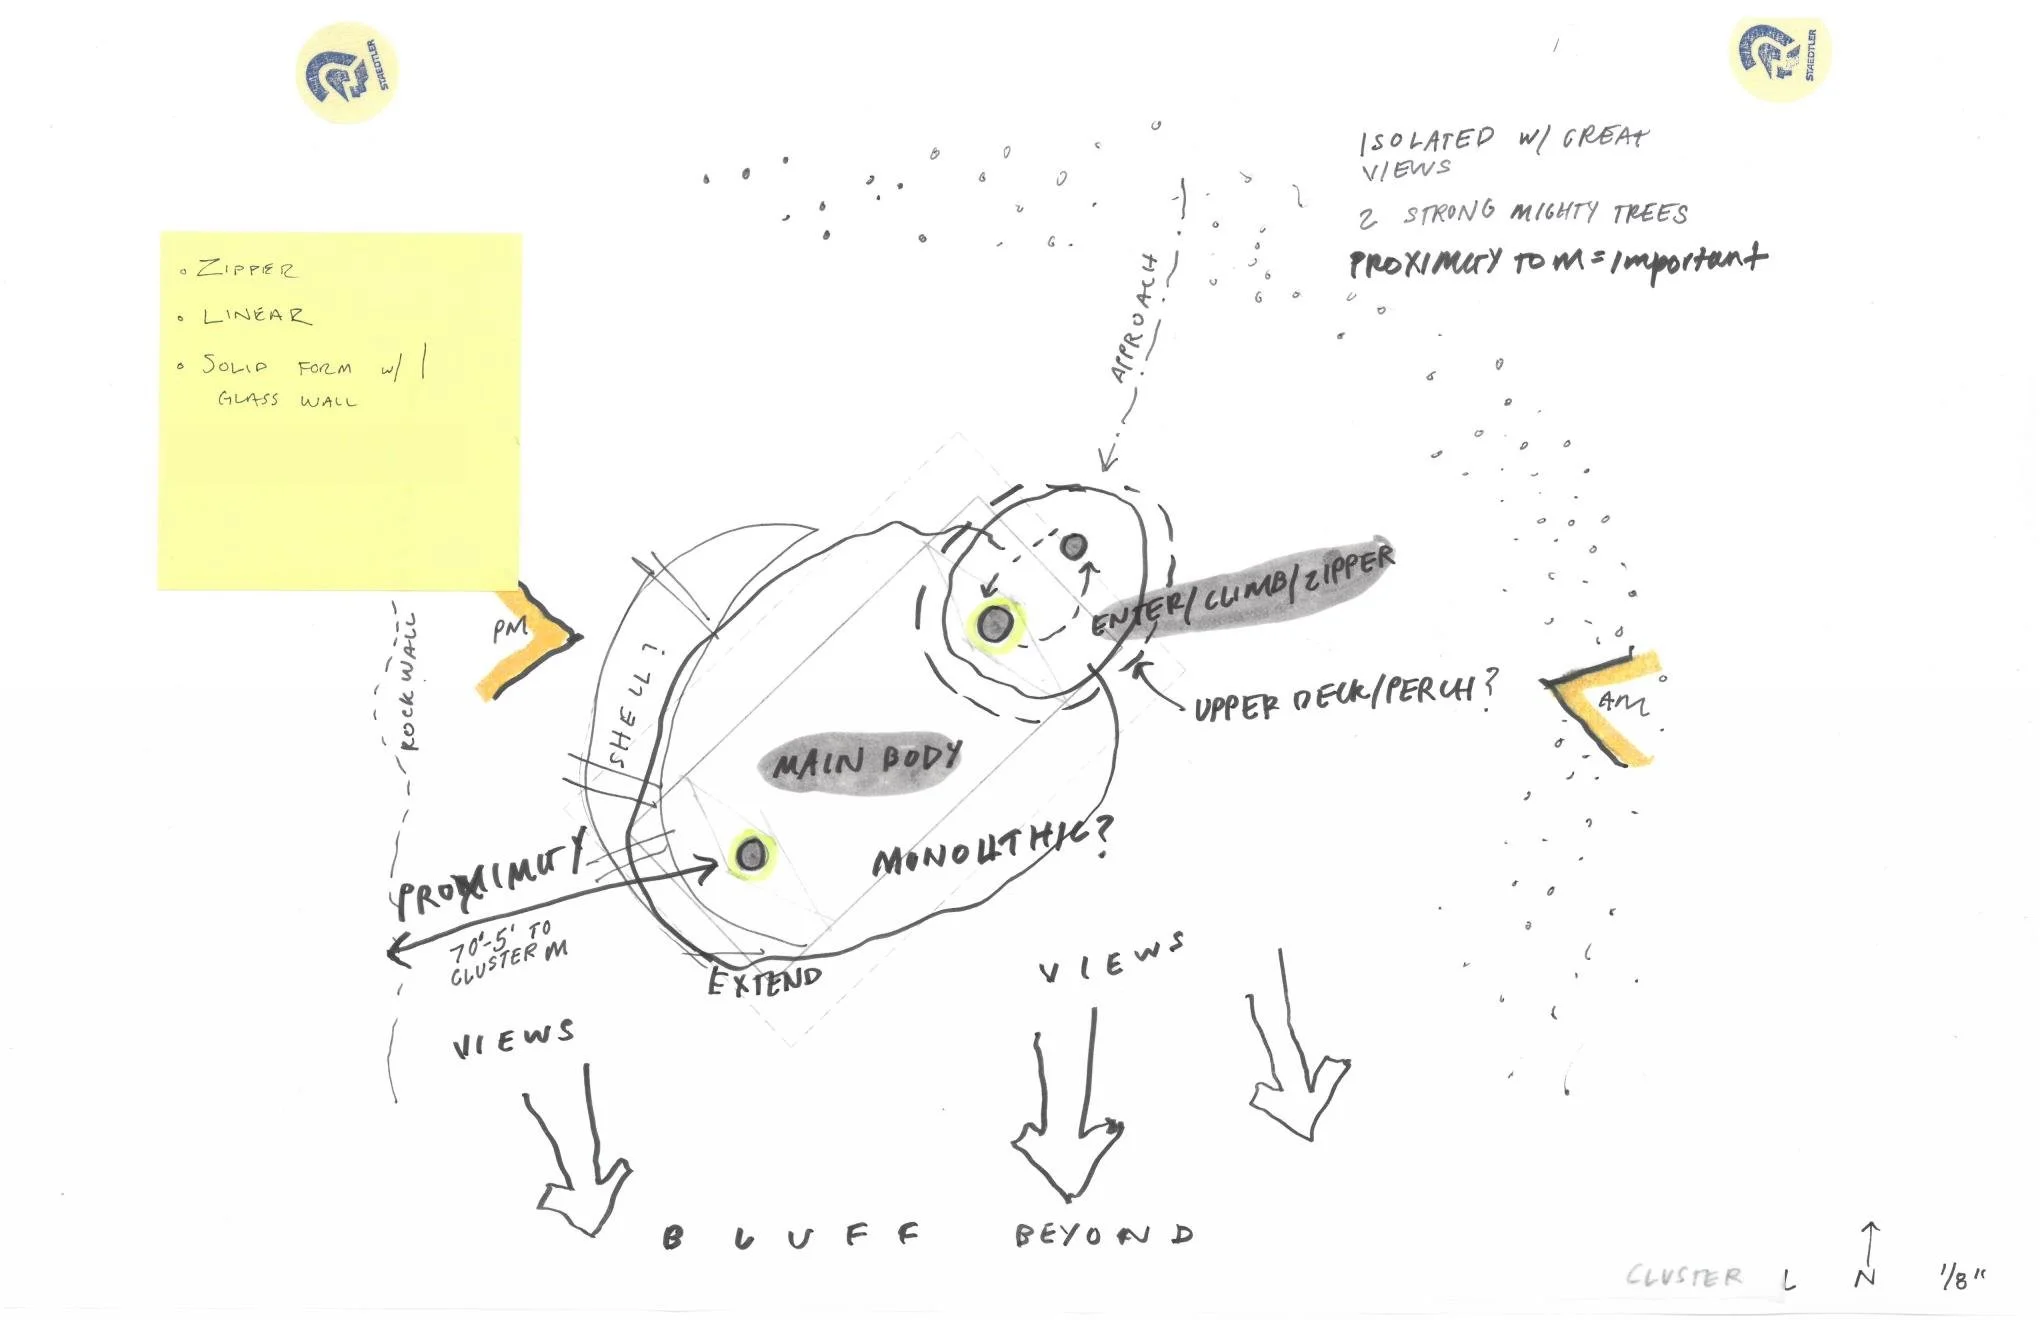 STAEDTLER
STAEDTLER
ISOLATED W/ GREAT
VIEWS
2 STRONG MIGHTY TREES
PROXIMITY TO M = important
• ZIPPER
• LINEAR
• SOLID FORM W/ 1
GLASS WALL
APPROACH
ENTER/CLIMB/ZIPPER
PM
ROCK WALL
SHELL?
UPPER DECK/PERCH?
AM
MAIN BODY
MONOLITHIC?
PROXIMITY
70'-5' TO
CLUSTER M
EXTEND
VIEWS
VIEWS
BLUFF BEYOND
CLUSTER L N 1/8"